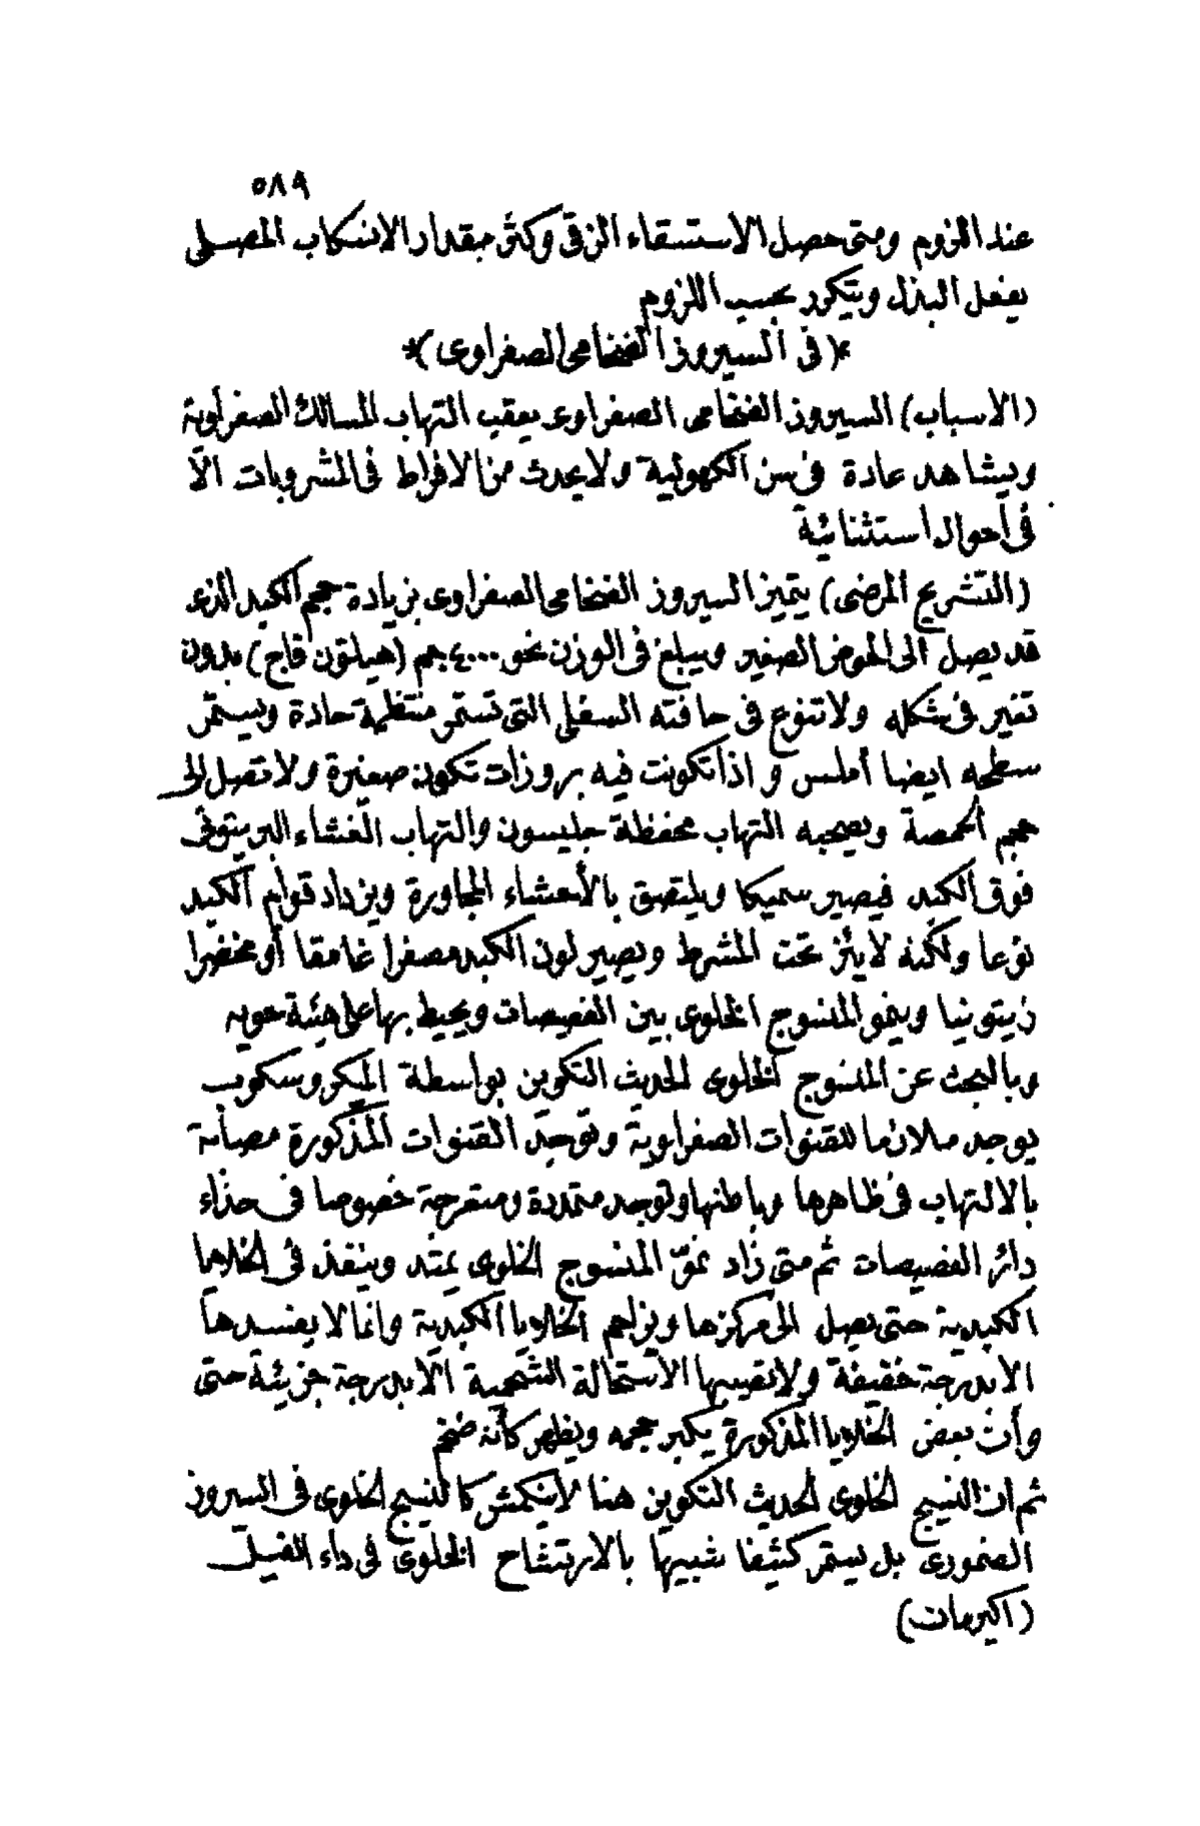 ٥٨٩
عند اللزوم ومتى حصل الاستسقاء الزقى وكثر مقدار الانسكاب المصلى
يفعل البذل ويتكرر بحسب اللزوم
*(فى السيروز الضخامى الصفراوى)*
(الاسباب) السيروز الضخامى الصفراوى يعقب التهاب المسالك الصفراوية
ويشاهد عادة فى سن الكهولية ولا يحدث من الافراط فى المشروبات الا
فى أحوال استثنائية
(التشريح المرضى) يتميز السيروز الضخامى الصفراوى بزيادة حجم الكبد الذى
قد يصل الى الحوض الصغير ويبلغ فى الوزن نحو ٤٠٠٠ جم (هيلتون فاج) بدون
تغير فى شكله ولا تنوع فى حافته السفلى التى تستمر منتظمة حادة ويستمر
سطحه ايضا أملس واذا تكونت فيه بروزات تكون صغيرة ولا تصل الى
حجم الحمصة ويصحبه التهاب محفظة جليسون والتهاب الغشاء البريتونى
فوق الكبد فيصير سميكا ويلتصق بالأحشاء المجاورة ويزداد قوام الكبد
نوعا ولكنه لا يئز تحت المشرط ويصير لون الكبد مصفرا غامقا أو مخضرا
زيتونيا وينمو المنسوج الخلوى بين الفصيصات ويحيط بها على هيئة حويه
وبالبحث عن المنسوج الخلوى الحديث التكوين بواسطة الميكروسكوب
يوجد ملازما للقنوات الصفراوية وتوجد القنوات المذكورة مصابة
بالالتهاب فى ظاهرها وباطنها وتوجد متمددة ومتعرجة خصوصا فى حذاء
دائر الفصيصات ثم متى زاد نموّ المنسوج الخلوى يمتد وينفذ فى الخلايا
الكبدية حتى يصل الى مركزها ويزاحم الخلايا الكبدية وانما لا يفسدها
الا بدرجة خفيفة ولا تصيبها الاستحالة الشحمية الا بدرجة جزئية حتى
وأن بعض الخلايا المذكورة يكبر حجمه ويظهر كأنه ضخم
ثم ان النسيج الخلوى الحديث التكوين هنا لا ينكمش كالنسيج الخلوى فى السيروز
الضمورى بل يستمر كثيفا شبيها بالارتشاح الخلوى فى داء الفيل
(اكيرمان)